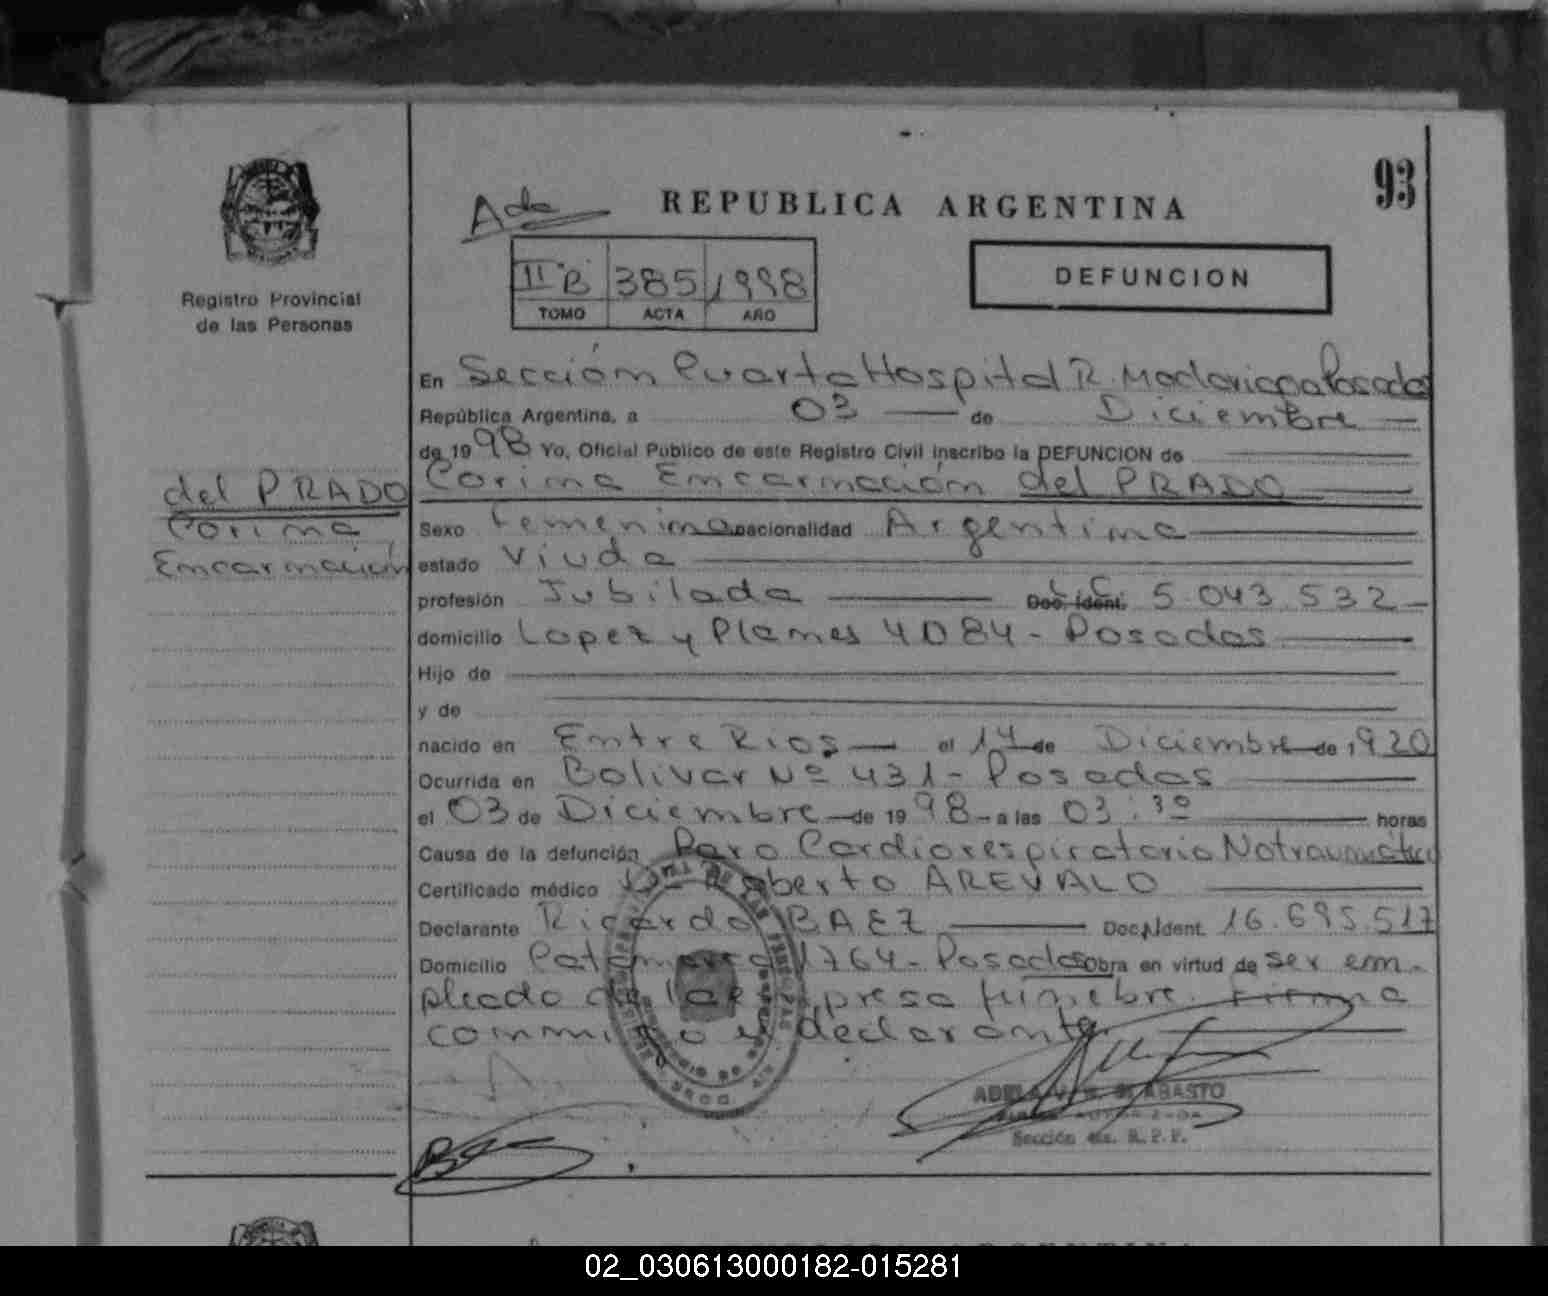 93
Ada
REPUBLICA ARGENTINA
Registro Provincial
de las Personas
II "B" 385 1998
TOMO ACTA AÑO
DEFUNCION
En Sección Cuarta Hospital R. Madariaga Posadas
República Argentina, a 03 de Diciembre
de 1998 Yo, Oficial Público de este Registro Civil inscribo la DEFUNCION de
Corina Encarnación del PRADO
del PRADO
Corina
Encarnación
Sexo femenina nacionalidad Argentina
estado Viuda
profesión Jubilada Doc. Ident. L C 5.043.532
domicilio Lopez y Planes 4084 - Posadas
Hijo de
y de
nacido en Entre Rios el 14 de Diciembre de 1920
Ocurrida en Bolivar Nº 431 - Posadas
el 03 de Diciembre de 1998 a las 03:30 horas
Causa de la defunción Paro Cardiorespiratorio No traumático
Certificado médico Dr Roberto AREVALO
Declarante Ricardo BAEZ Doc. Ident. 16.695.517
Domicilio Catamarca 1764 - Posadas obra en virtud de ser em-
pleado de la empresa fúnebre. Firma
conmigo el declarante.
ABASTO
Sección 4ta. R.P.P.
02_030613000182-015281